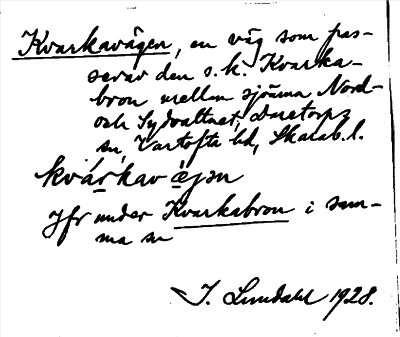 Kvarkavägen, en väg som pas-
serar den s.k. Kvarka-
bron mellan sjöarna Nord-
och Sydvattnet, Dretorps
sn, Vartofta hd, Skarab. l.
kvárkav ę́jən
Jfr under Kvarkabron i sam-
ma sn
I. Lundahl 1928.